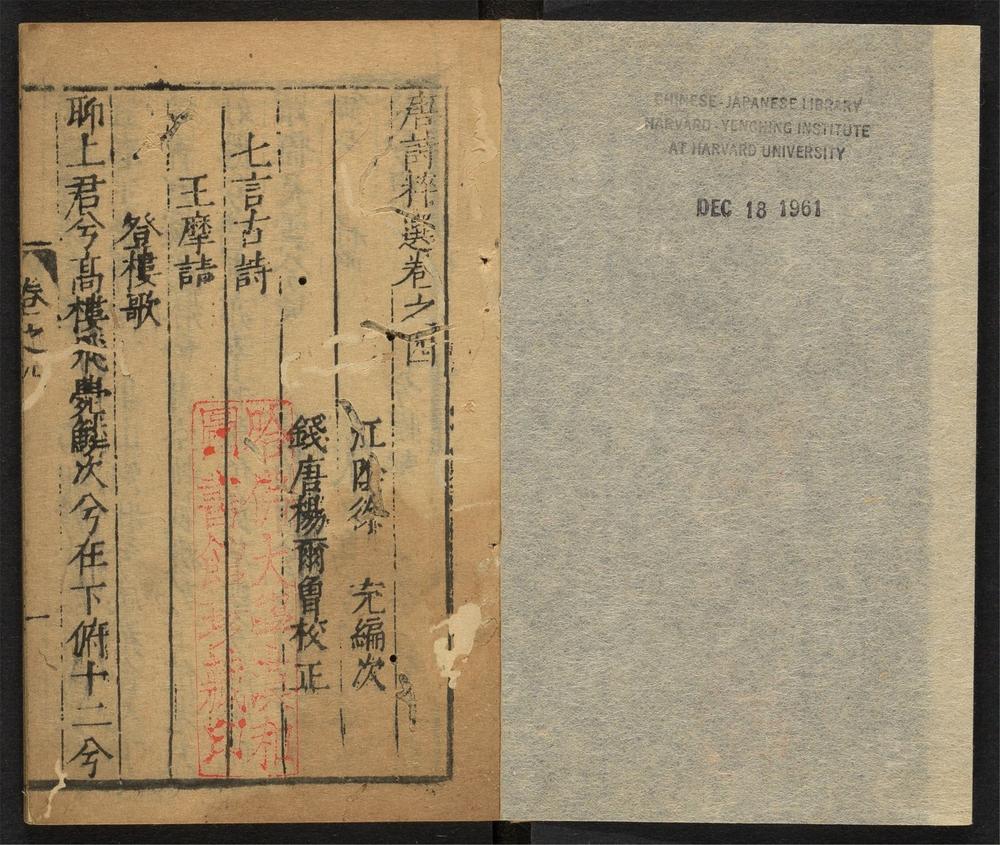 CHINESE-JAPANESE LIBRARY
HARVARD-YENCHING INSTITUTE
AT HARVARD UNIVERSITY
DEC 18 1961
唐詩粹選卷之四
江陰徐 充編次
錢唐楊爾曾校正
七言古詩
王摩詰
登樓歌
聊上君兮高樓飛甍鱗次兮在下俯十二兮
卷之
一
哈佛大學漢和
圖書館珍藏印